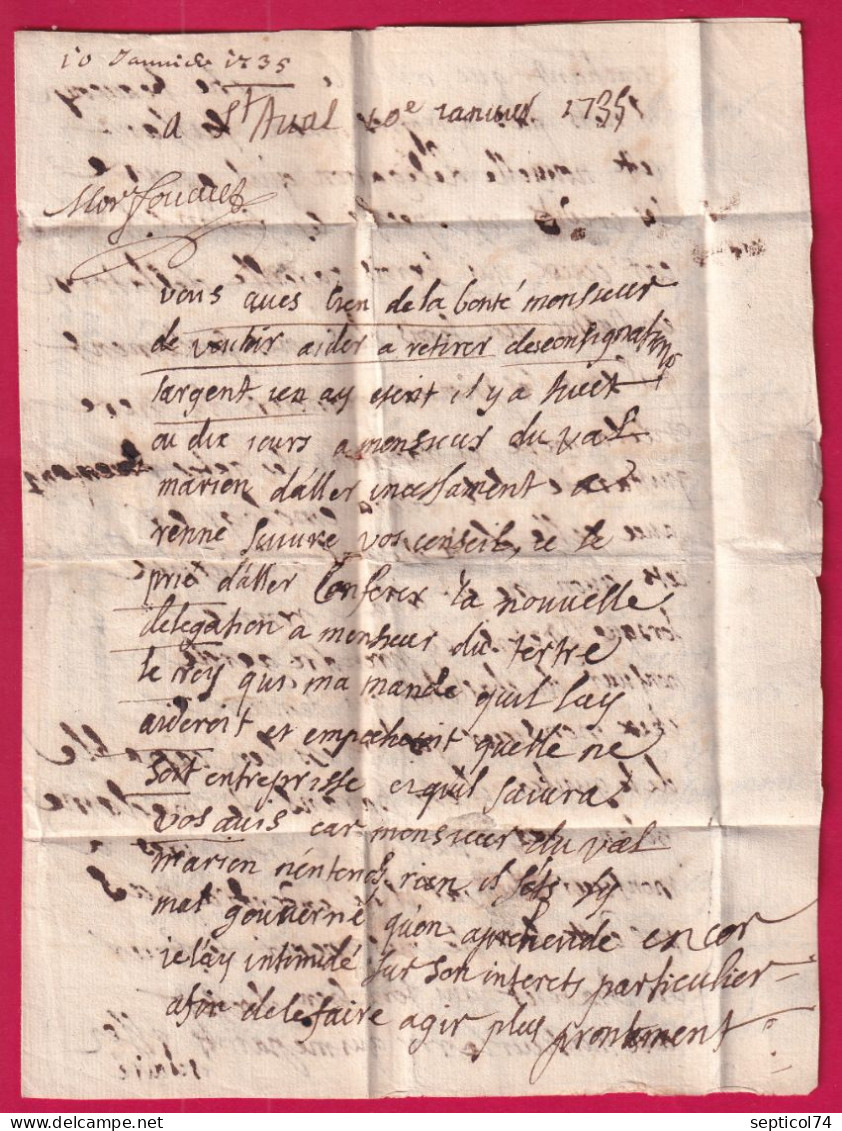 10 Janvier 1735
a St Aual 10e Ianuier 1735
Monr fouquet
vous aues bien de la bonté monsieur
de vouloir aider a retirer des consignations
largent ien ay escrit il y a huict
ou dix iours a monsieur du val
marion d'aller incessament a
renne suiure vos conseil, ie le
prié d'aller Conferer la nouvelle
delegation a monsieur du tertre
le roy qui ma mandé quil lay
aideroit et empecheroit quelle ne
soit entreprisse et quil suiura
vos auis car monsieur du val
marion n'entend rien il sets sy
mal gouuerné qu'on aprehende encor
ie lay intimidé sur son interets particulier
afin de le faire agir plus prontement
septicol74